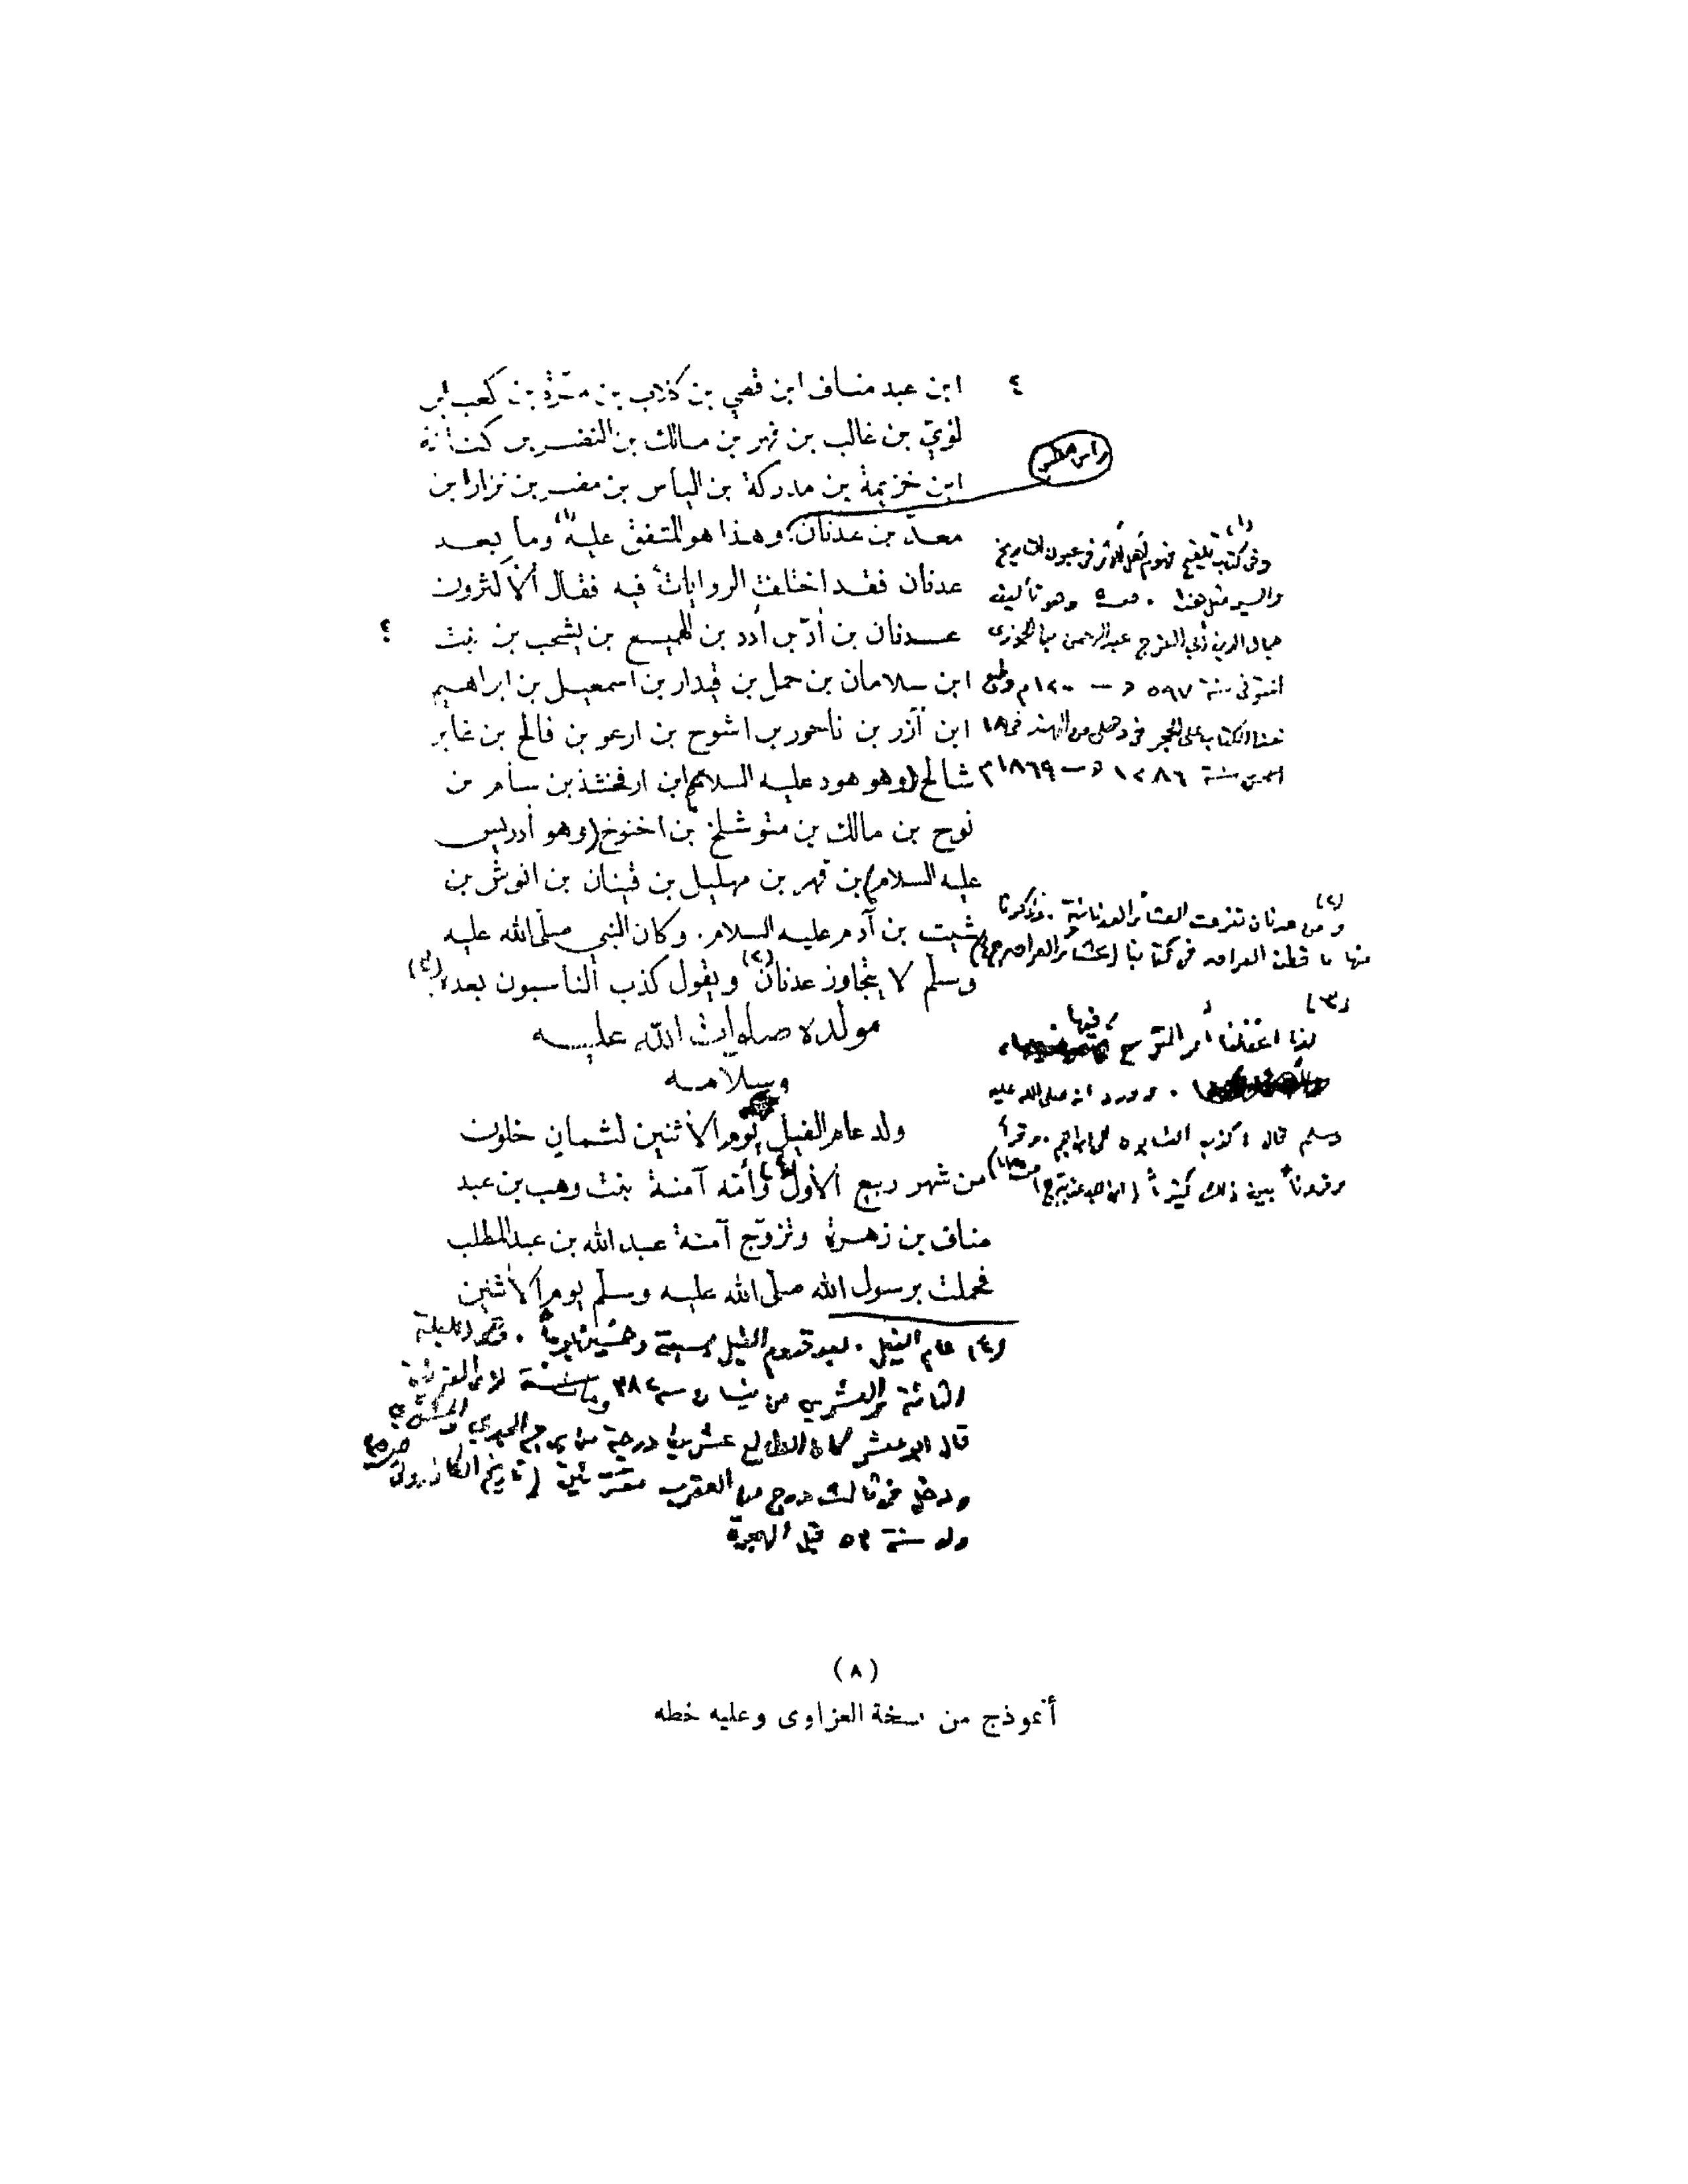 ٤
ابن عبد مناف ابن قصي بن كلاب بن مرّة بن كعب ابن
لؤيّ بن غالب بن فهر بن مالك بن النضر بن كنانة
ابن خزيمة بن مدركة بن الياس بن مضر بن نزار ابن
معدّ بن عدنان. وهذا هو المتفق عليه (١) وما بعد
عدنان فقد اختلفت الروايات فيه فقال الأكثرون
عدنان بن أدّ بن أدد بن الهميسع بن يشحب بن نبت ؟
ابن سلامان بن حمل بن قيدار بن اسمعيل بن ابراهيم
ابن آزر بن ناحور بن اشوح بن ارعو بن فالح بن غابر
شالح (وهو هود عليه السلام) ابن ارفخشذ بن سام بن
نوح بن مالك بن متوشلخ بن اخنوخ (وهو أدريس
عليه السلام) بن قهر بن مهليل بن قينان بن انوش بن
شيت بن آدم عليه السلام. وكان النبي صلّى الله عليه
وسلّم لا يتجاوز عدنان (٢) ويقول كذب الناسبون بعده (٣)
مولده صلوات الله عليه
وسلامه
ولد عام الفيل يوم الأثنين لثمان خلون
من شهر ربيع الأول (٤) وأمّه آمنة بنت وهب بن عبد
مناف بن زهرة وتزوّج آمنة عبد الله بن عبد المطلب
فحملت برسول الله صلّى الله عليه وسلّم يوم الأثنين
رأس سطر
(١)
وفي كتاب تلقيح فهوم أهل الأثر في عيون التاريخ
والسير مثل هذا . وهو تأليف
جمال الدين أبي الفرج عبد الرحمن ابن الجوزي
المتوفى سنة ٥٩٧ هـ — ١٢٠٠م وطبع
هذا الكتاب على الحجر في دهلي من الهند في ١٨
سنة ١٢٨٦ هـ — ١٨٦٩م
(٢)
ومن عدنان تفرعت العشائر العدنانية . وذكرنا
منها ما قطن العراق في كتابنا (عشائر العراق)
(٣)
لذا اغفلنا أمر التوسع فيها
. وورد انه صلى الله عليه
وسلم قال كذب النسابون . وقرأ
وقرونا بين ذلك كثيراً
(٤) عام الفيل . بعد قدوم الفيل بسبعة وخمسين يوماً .
الثامنة والعشرين من نيسان سنة
قال ابو معشر كان الطالع عشرين درجة من برج الجدي
ثالث درج من العقرب (تاريخ الكازروني
ولد سنة ٥٣ قبل الهجرة
(٨)
أنموذج من نسخة العزاوى وعليه خطه